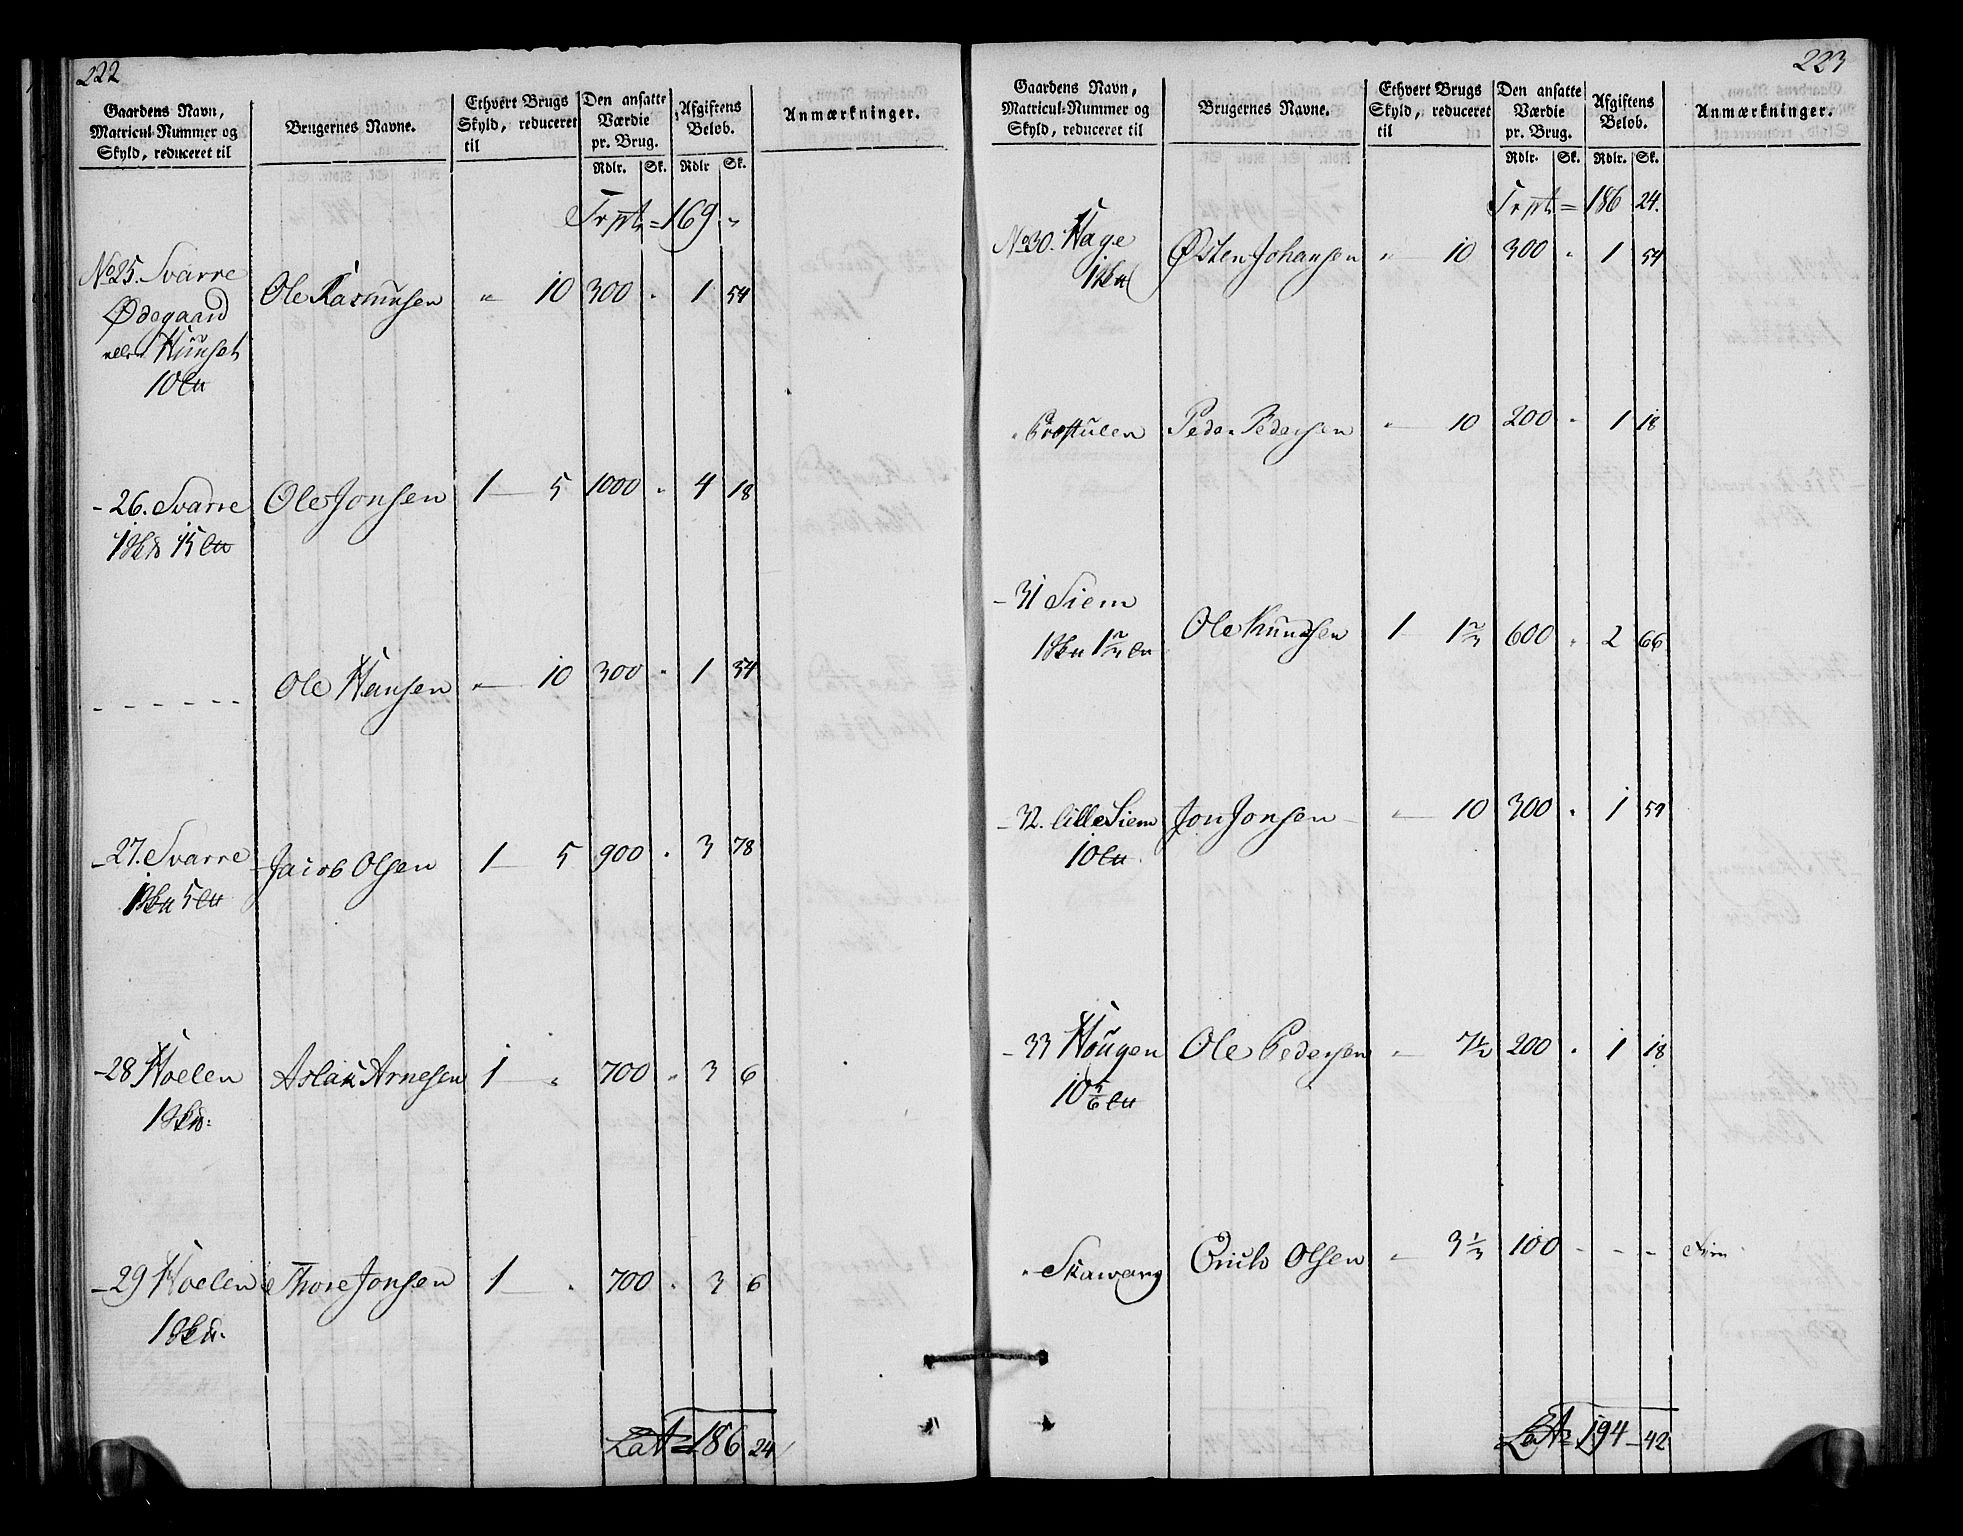 222
Gaardens Navn, Matricul-Nummer og Skyld, reduceret til
Brugernes Navne.
Ethvert Brugs Skyld, reduceret til
Den ansatte Værdie pr. Brug.
Afgiftens Belob.
Anmærkninger.
Rdlr. Sk. Rdlr Sk.
Trpt = 169 "
No 25. Svarre Ole Rasmusen " 10 300 " 1 54
Ødegaard
eller Hunset
10
- 26. Svarre Ole Jonsen 1 - 5 1000 " 4 18
1 15
- - - - - - Ole Hansen " 10 300 " 1 54
- 27. Svarre Jacob Olsen 1 - 5 900 " 3 78
1 5
- 28 Hoelen Aslak Arnesen 1 - " 700 " 3 6
1
- 29 Hoelen Thore Jonsen 1 - " 700 " 3 6
1
Lat = 186 24
223
Gaardens Navn, Matricul-Nummer og Skyld, reduceret til
Brugernes Navne.
Ethvert Brugs Skyld, reduceret til
Den ansatte Værdie pr. Brug.
Afgiftens Belob.
Anmærkninger.
Rdlr. Sk. Rdlr. Sk.
Trpt = 186 24.
No 30. Hage Østen Johansen " 10 300 " 1 54
1
" Peder Pedersen " 10 200 " 1 18
- 31 Siem Ole Knudsen 1 600 " 2 66
1
- 32. Lille Siem Jon Jonsen - " 10 300 " 1 54
10
- 33 Hougen Ole Pedersen " 7½ 200 " 1 18
10 5/6
" Skawang Olsen " 3 1/3 100 - - -
Lat = 194 - 42